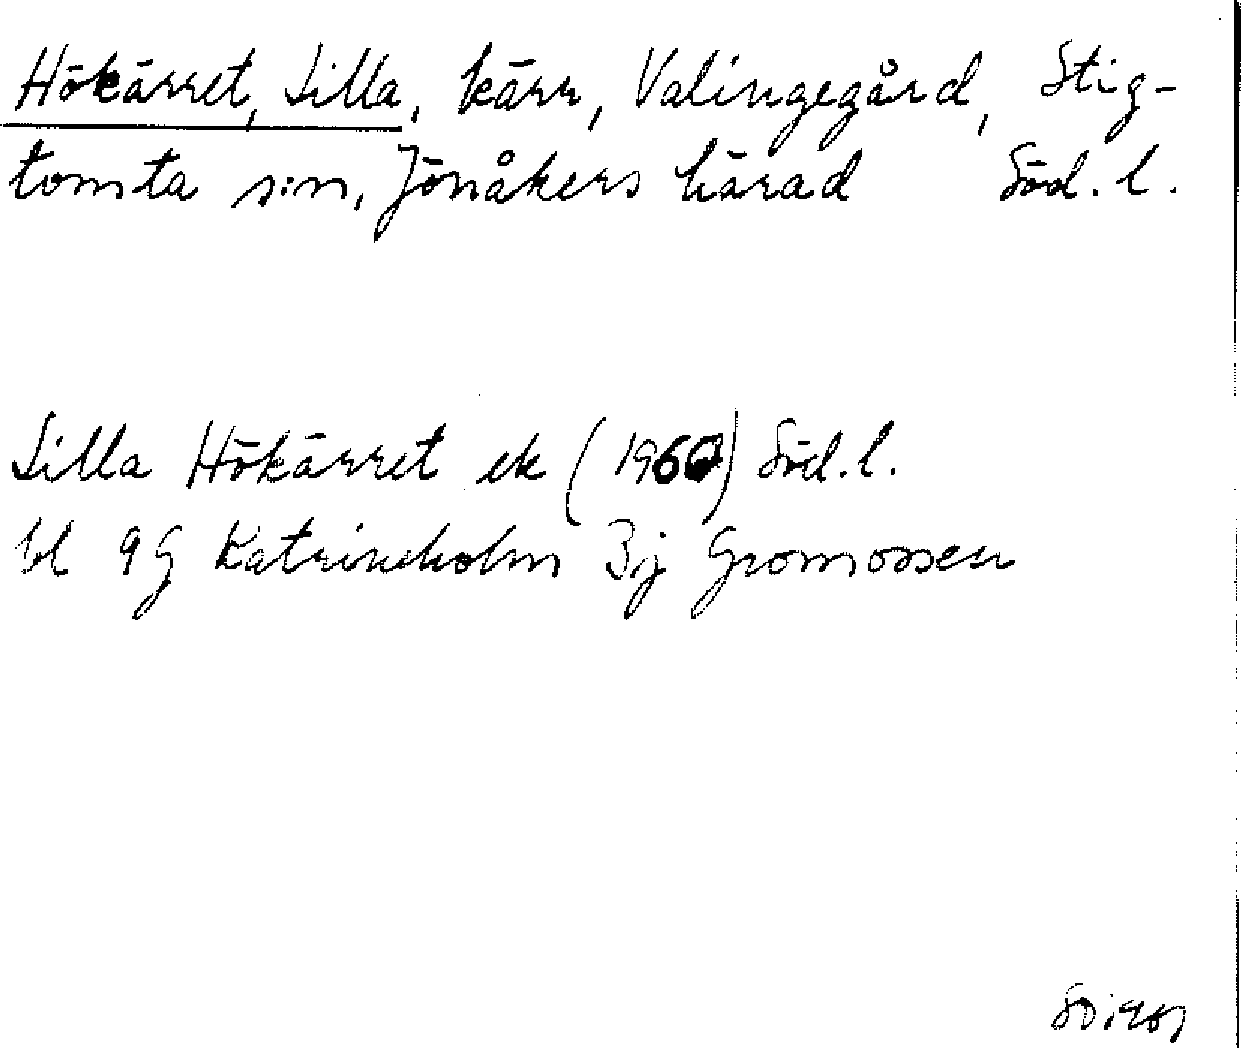 Hökärret, Lilla, kärr, Valingegård, Stig-
tomta s:n, Jönåkers härad Söd. l.
Lilla Hökärret ek (1960) Söd. l.
bl 9G Katrineholm 3ij Gromossen